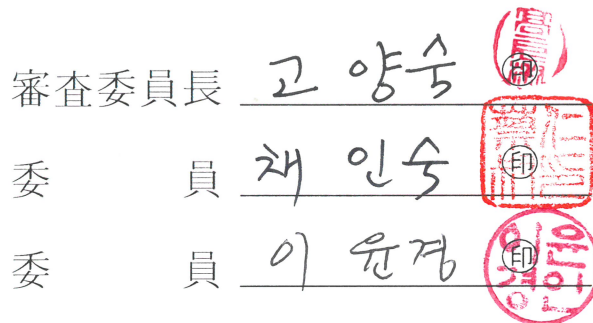 審査委員長 고 양숙 ㊞
委 員 채 인숙 ㊞
委 員 이 윤경 ㊞